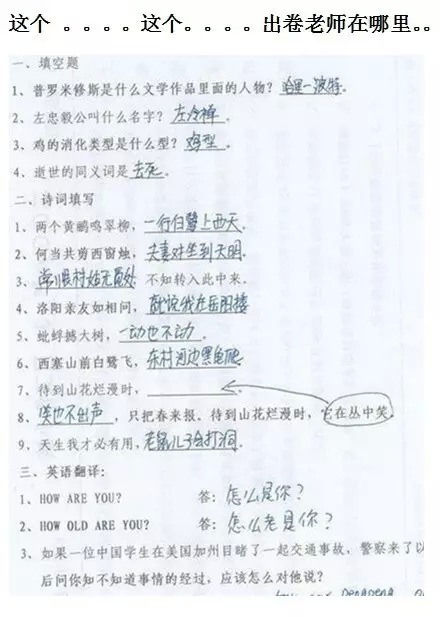 这个 。。。。这个。。。。出卷老师在哪里。。
一、填空题
1、普罗米修斯是什么文学作品里面的人物？哈里一波特。
2、左忠毅公叫什么名字？左冷禅。
3、鸡的消化类型是什么型？鸡型。
4、逝世的同义词是去死。
二、诗词填写
1、两个黄鹂鸣翠柳，一行白鹭上西天。
2、何当共剪西窗烛，夫妻对坐到天明。
3、常恨村姑无觅处 不知转入此中来。
4、洛阳亲友如相问，就说我在岳阳楼
5、蚍蜉撼大树，一动也不动。
6、西塞山前白鹭飞，东村河边黑龟爬
7、待到山花烂漫时，
8、也不出声，只把春来报。待到山花烂漫时，它在丛中笑。
9、天生我才必有用，老鼠儿子会打洞。
三、英语翻译：
1、HOW ARE YOU? 答：怎么是你？
2、HOW OLD ARE YOU? 答：怎么老是你？
3、如果一位中国学生在美国加州目睹了一起交通事故，警察来了以
后问你知不知道事情的经过，应该怎么对他说？